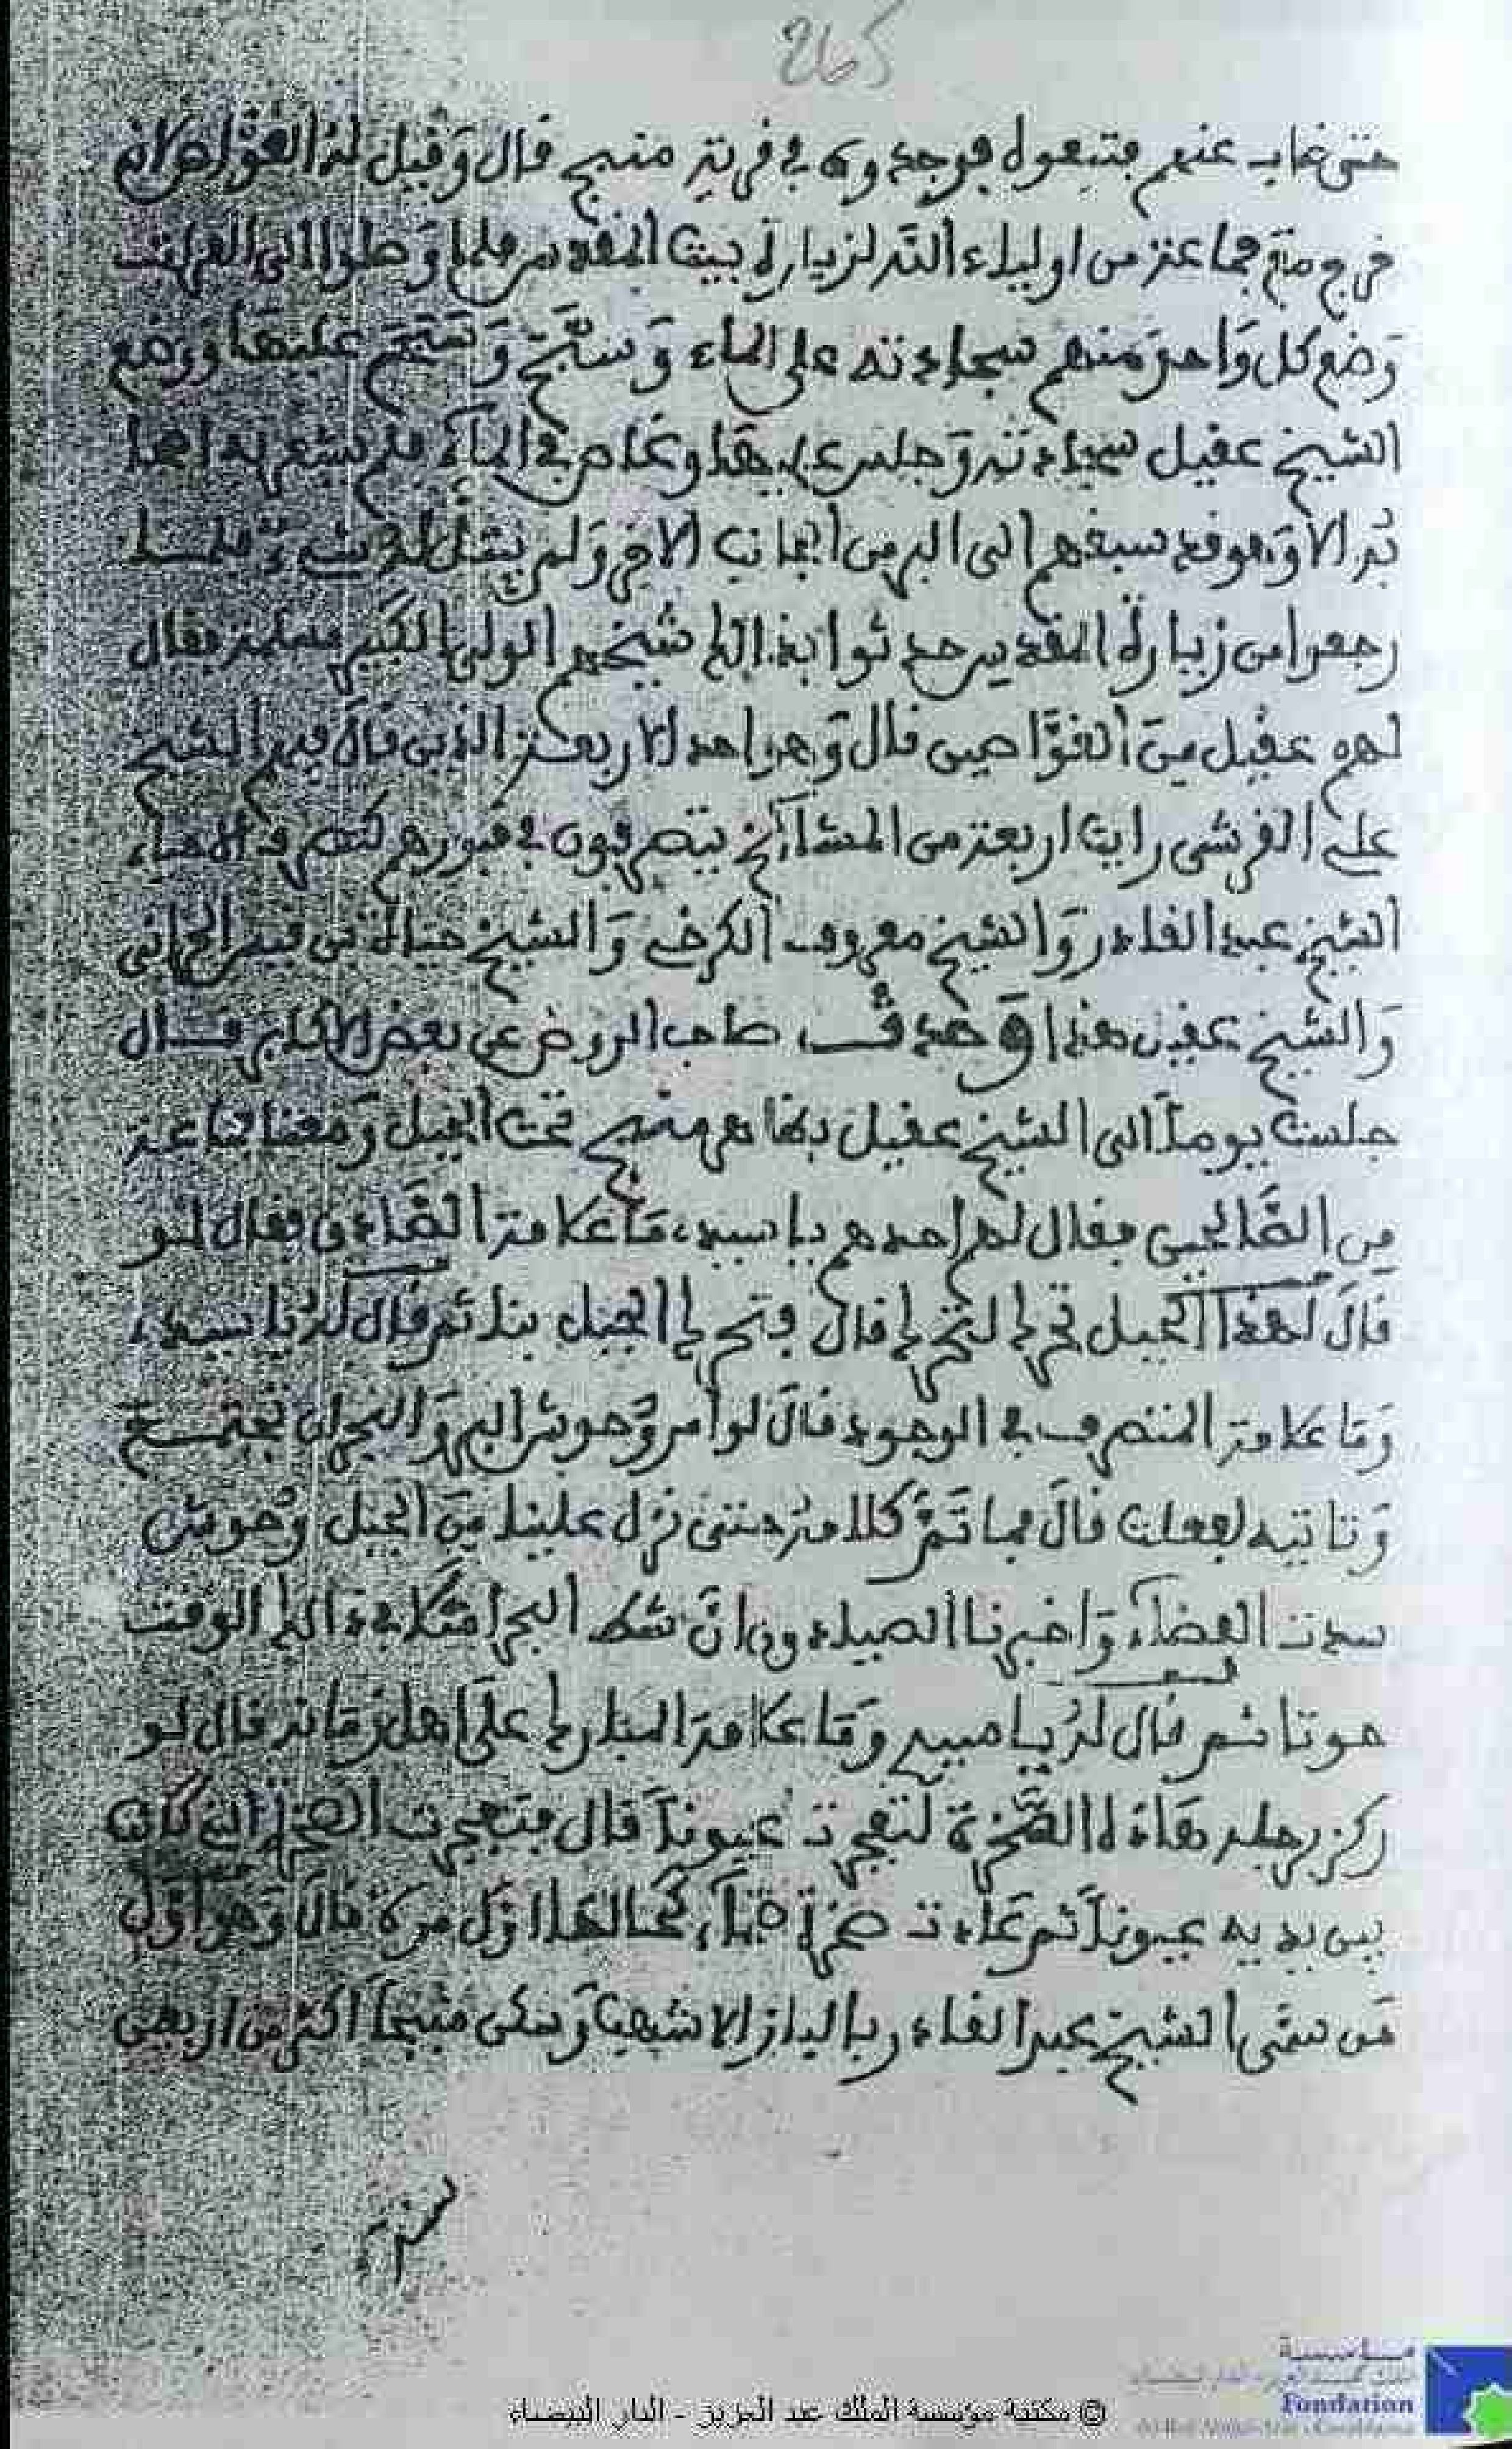 265
حتى غاب عنهم فتبعوه فوجدوه في قرية منبج قال وقيل له الغواص لانه
خرج مع جماعة من اولياء الله لزيارة بيت المقدس فلما وصلوا الى الفرات
وضع كل واحد منهم سجادته على الماء وسبح عليها ووضع
الشيخ عقيل سجادته وجلس عليها وغاص في الماء فلم يشعر احدا
به الا وهو قد سبقهم الى البر من الجانب الاخر ولم يبتل له شيء فلما
رجعوا من زيارة المقدس حدثوا بذالك شيخهم الولي الكبير مسلمة فقال
لهم عقيل من الغواصين قال وهو احد الاربعة الذين قال فيهم الشيخ
علي القرشي رايت اربعة من المشائخ يتصرفون في قبورهم كتصرف الاحياء
الشيخ عبد القادر والشيخ معروف الكرخي والشيخ حياة بن قيس الحراني
والشيخ عقيل هذا وحدث صاحب الروض عن بعض الاكابر قال
جلست يوماً الى الشيخ عقيل بظاهر منبج تحت الجبل ومعنا جماعة
من الصالحين فقال له احدهم يا سيدي ما علامة الصادق فقال لو
قال لهذا الجبل تحرك لتحرك قال فتحرك الجبل بنا ثم قال له يا سيدي
وما علامة المتصرف في الوجود قال لو امر وحوش البر والبحر ان تجتمع
وتاتيه لفعلت قال فما تم كلامه حتى نزل علينا من الجبل وحوش
سدت الفضاء واخبرنا الصيادون ان شط البحر امتلا في ذالك الوقت
حوتا ثم قال له يا سيدي وما علامة المبارك على اهل زمانه قال لو
ركز برجله هاذه الصخرة لتفجرت عيوناً قال فتفجرت الصخرة التي كانت
بين يديه عيوناً ثم عادت صخرة صماء كحالها اول مرة قال وهو اول
من سمى الشيخ عبد القادر بالباز الاشهب وسكن منبجا اكثر من اربعين
سنة
© مكتبة مؤسسة الملك عبد العزيز - الدار البيضاء
مؤسسة
Fondation